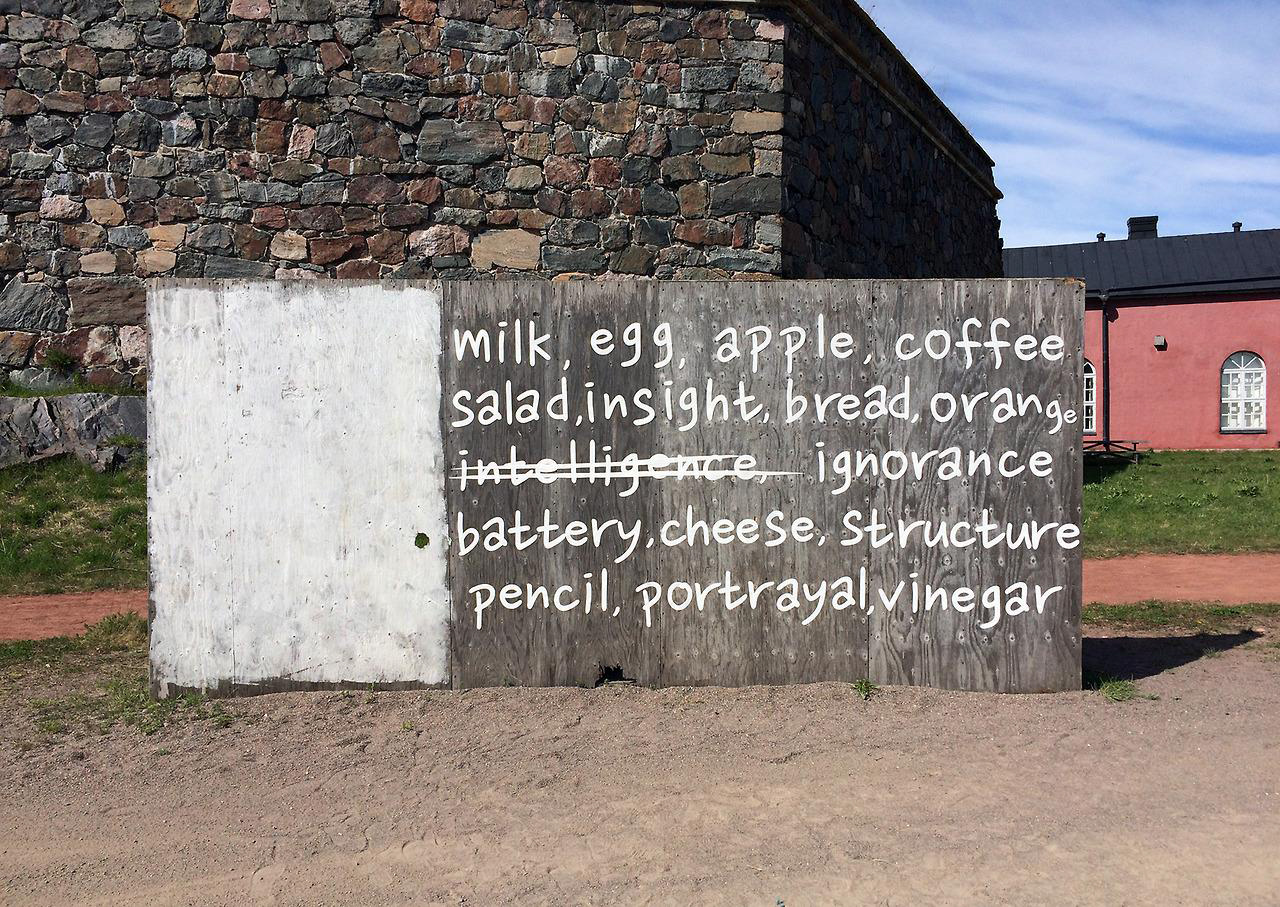 milk, egg, apple, coffee
salad, insight, bread, orange
intelligence, ignorance
battery, cheese, structure
pencil, portrayal, vinegar